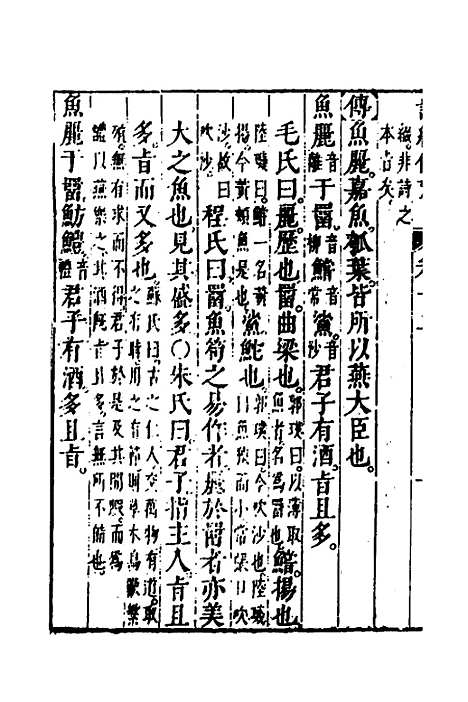 緩非詩之
本旨矣
傅魚麗嘉魚瓠葉皆所以燕大臣也。
魚麗音離于罶音柳鱨音常鯊音沙君子有酒旨且多。
毛氏曰麗歷也罶曲梁也郭璞曰以薄取魚者名為罶也鱨揚也
陸璣曰鱨一名黃揚今黃頰魚是也鯊鮀也郭璞曰今吹沙也陸璣曰魚狹而小常張口吹
沙故曰吹沙程氏曰罶魚笱之易作者麗於罶者亦美
大之魚也見其盛多〇朱氏曰君子指主人旨且
多旨而又多也蘇氏曰古之仁人交萬物有道取之有時用之有節則草木鳥獸繁
殖無有求而不得君子於是及其閒暇而為醴以燕樂之其酒殽旨多言無所不備也
魚麗于罶魴鱧音禮君子有酒多且旨。